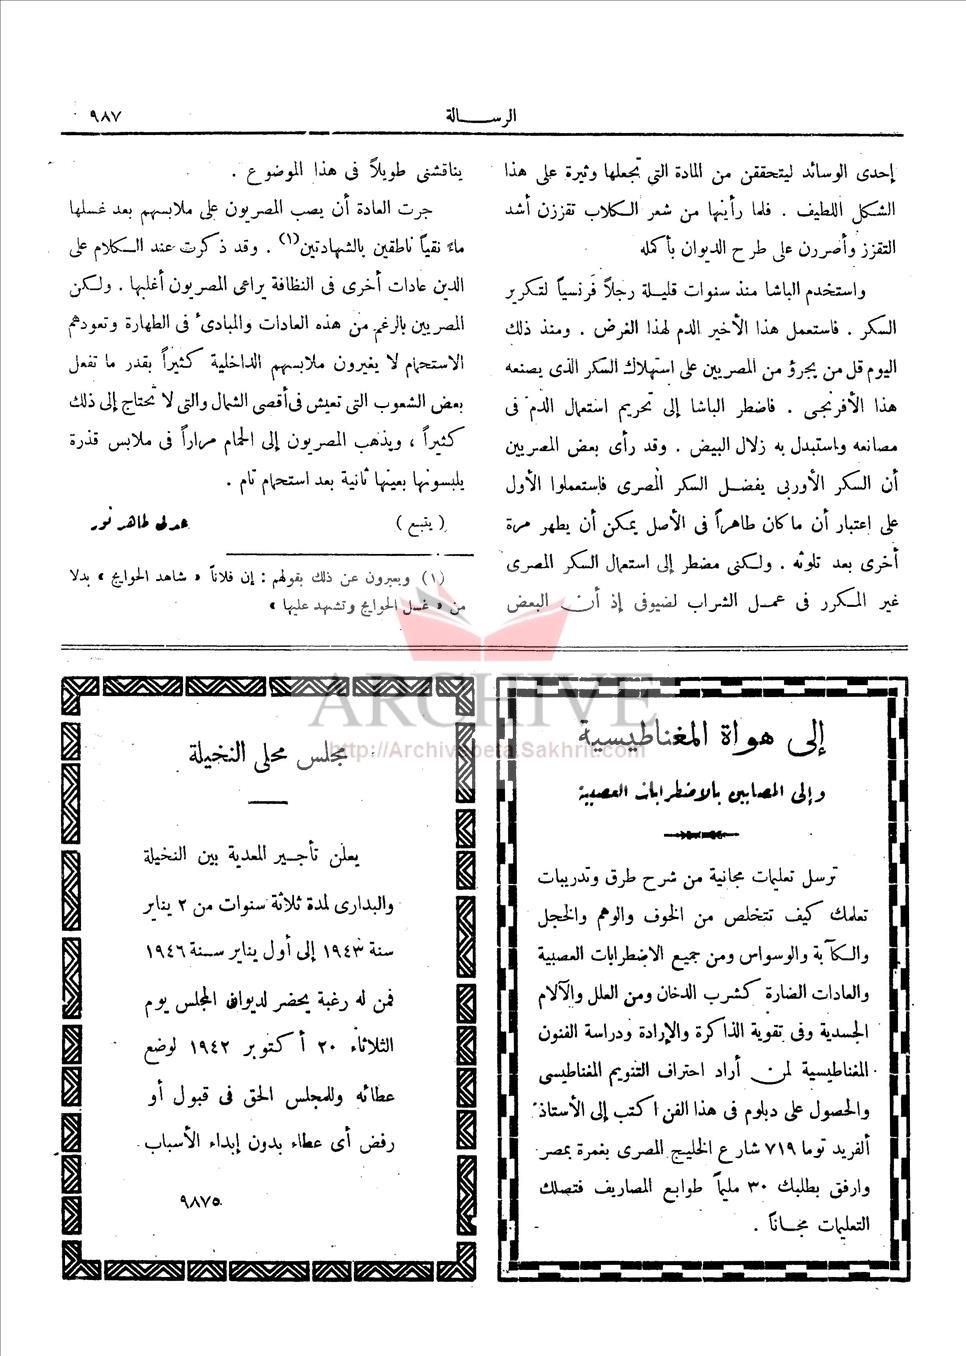 الرسالة
٩٨٧
إحدى الوسائد ليتحققن من المادة التي تجعلها وثيرة على هذا
الشكل اللطيف . فلما رأينها من شعر الكلاب تقززن أشد
التقزز وأصررن على طرح الديوان بأكمله
واستخدم الباشا منذ سنوات قليلة رجلاً فرنسياً لتكرير
السكر . فاستعمل هذا الأخير الدم لهذا الغرض . ومنذ ذلك
اليوم قل من يجرؤ من المصريين على استهلاك السكر الذى يصنعه
هذا الأفرنجى . فاضطر الباشا إلى تحريم استعمال الدم فى
مصانعه واستبدل به زلال البيض . وقد رأى بعض المصريين
أن السكر الأوربى يفضل السكر المصرى فاستعملوا الأول
على اعتبار أن ما كان طاهراً فى الأصل يمكن أن يطهر مرة
أخرى بعد تلوثه . ولكنى مضطر إلى استعمال السكر المصرى
غير المكرر فى عمل الشراب لضيوفى إذ أن البعض
يناقشنى طويلاً فى هذا الموضوع .
جرت العادة أن يصب المصريون على ملابسهم بعد غسلها
ماءً نقياً ناطقين بالشهادتين(١) . وقد ذكرت عند الكلام على
الدين عادات أخرى فى النظافة يراعى المصريون أغلبها . ولكن
المصريين بالرغم من هذه العادات والمبادئ فى الطهارة وتعودهم
الاستحمام لا يغيرون ملابسهم الداخلية كثيراً بقدر ما تفعل
بعض الشعوب التى تعيش فى أقصى الشمال والتى لا تحتاج إلى ذلك
كثيراً ، ويذهب المصريون إلى الحمام مراراً فى ملابس قذرة
يلبسونها بعينها ثانية بعد استحمام تام .
( يتبع ) عدلى طاهر نور
(١) ويعبرون عن ذلك بقولهم : إن فلاناً « شاهد الحوايج » بدلا
من « غسل الحوايج وتشهد عليها »
ARCHIVE
http://Archivebeta.Sakhrit.com
إلى هواة المغناطيسية
وإلى المصابين بالاضطرابات العصبية
ترسل تعليمات مجانية من شرح طرق وتدريبات
تعلمك كيف تتخلص من الخوف والوهم والخجل
والكآبة والوسواس ومن جميع الاضطرابات العصبية
والعادات الضارة كشرب الدخان ومن العلل والآلام
الجسدية وفى تقوية الذاكرة والإرادة ودراسة الفنون
المغناطيسية لمن أراد احتراف التنويم المغناطيسى
والحصول على دبلوم فى هذا الفن اكتب إلى الأستاذ
ألفريد توما ٧١٩ شارع الخليج المصرى بغمرة بمصر
وارفق بطلبك ٣٠ مليماً طوابع المصاريف فتصلك
التعليمات مجاناً .
مجلس محلى النخيلة
يعلن تأجير المعدية بين النخيلة
والبدارى لمدة ثلاثة سنوات من ٢ يناير
سنة ١٩٤٣ إلى أول يناير سنة ١٩٤٦
فمن له رغبة يحضر لديوان المجلس يوم
الثلاثاء ٢٠ أكتوبر ١٩٤٢ لوضع
عطائه وللمجلس الحق فى قبول أو
رفض أى عطاء بدون إبداء الأسباب
٩٨٧٥